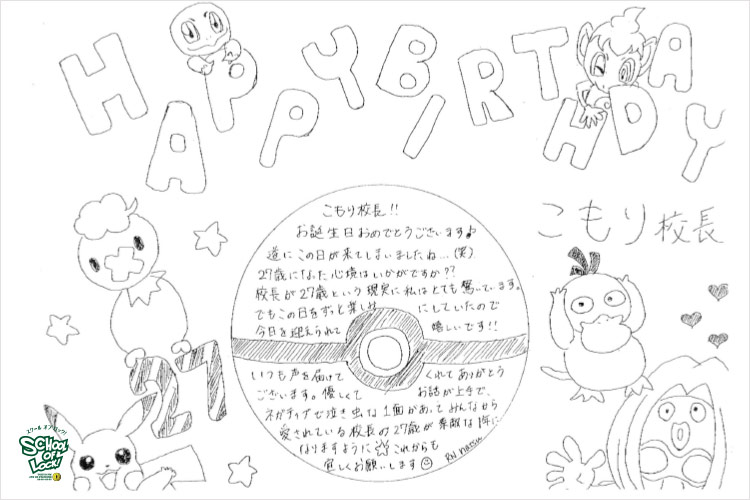 HAPPY BIRTHDAY
こもり校長
こもり校長!!
お誕生日おめでとうございます♪
遂にこの日が来てしまいましたね…(笑)
27歳になった心境はいかがですか??
校長が27歳という現実に私はとても驚いています。
でもこの日をずっと楽しみにしていたので
今日を迎えられて嬉しいです!!
いつも声を届けてくれてありがとう
ございます。優しくてお話が上手で、
ネガティブで泣き虫な1面があってみんなから
愛されている校長の27歳が素敵な1年に
なりますように これからも
宜しくお願いします☺
RN
27
スクール オブ ロック!
SCHOOL OF LOCK!